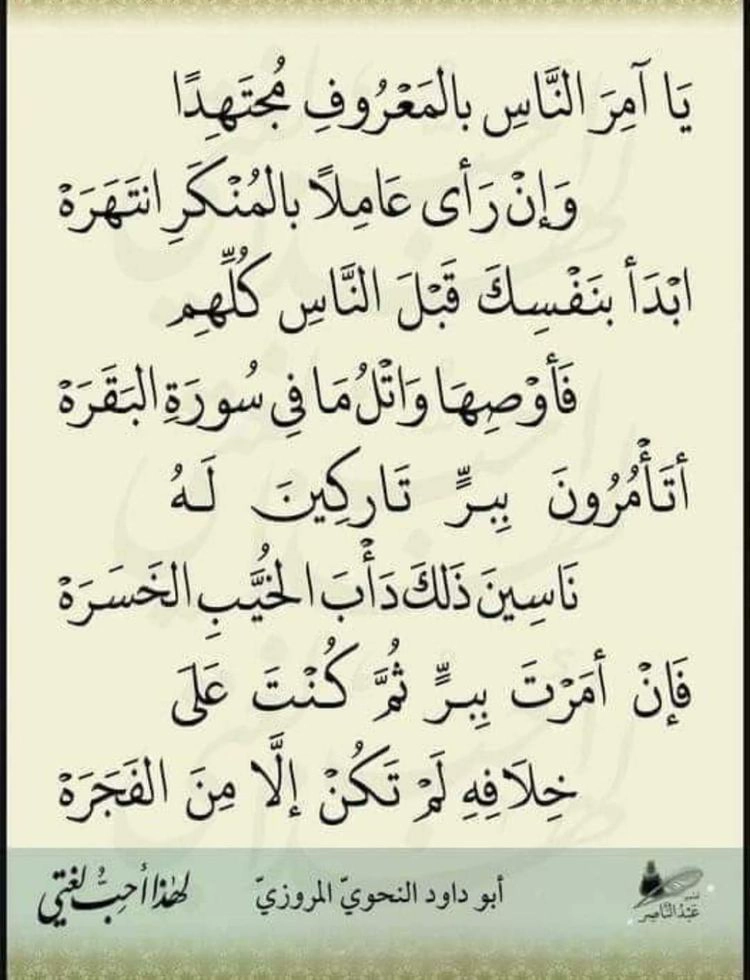 يَا آمِرَ النَّاسِ بالمَعْرُوفِ مُجتَهِدًا
وَإنْ رَأى عَامِلاً بالمُنْكَرِ انتَهَرَهْ
ابْدَأ بنَفْسِكَ قَبْلَ النَّاسِ كُلِّهِم
فَأوْصِهَا وَاتْلُ مَا في سُورَةِ البَقَرَهْ
أتَأْمُرُونَ بِبرٍّ تَاركِينَ لَهُ
نَاسِينَ ذَلكَ دَأْبَ الخُيَّبِ الخَسَرَهْ
فَإنْ أمَرْتَ بِبرٍّ ثُمَّ كُنْتَ عَلَى
خِلَافِهِ لَمْ تَكُنْ إلَّا مِنَ الفَجَرَهْ
أبو داود النحويّ المروزيّ
لهٰذا أُحِبُّ لغتي
عَبْدُ النَّاصِر